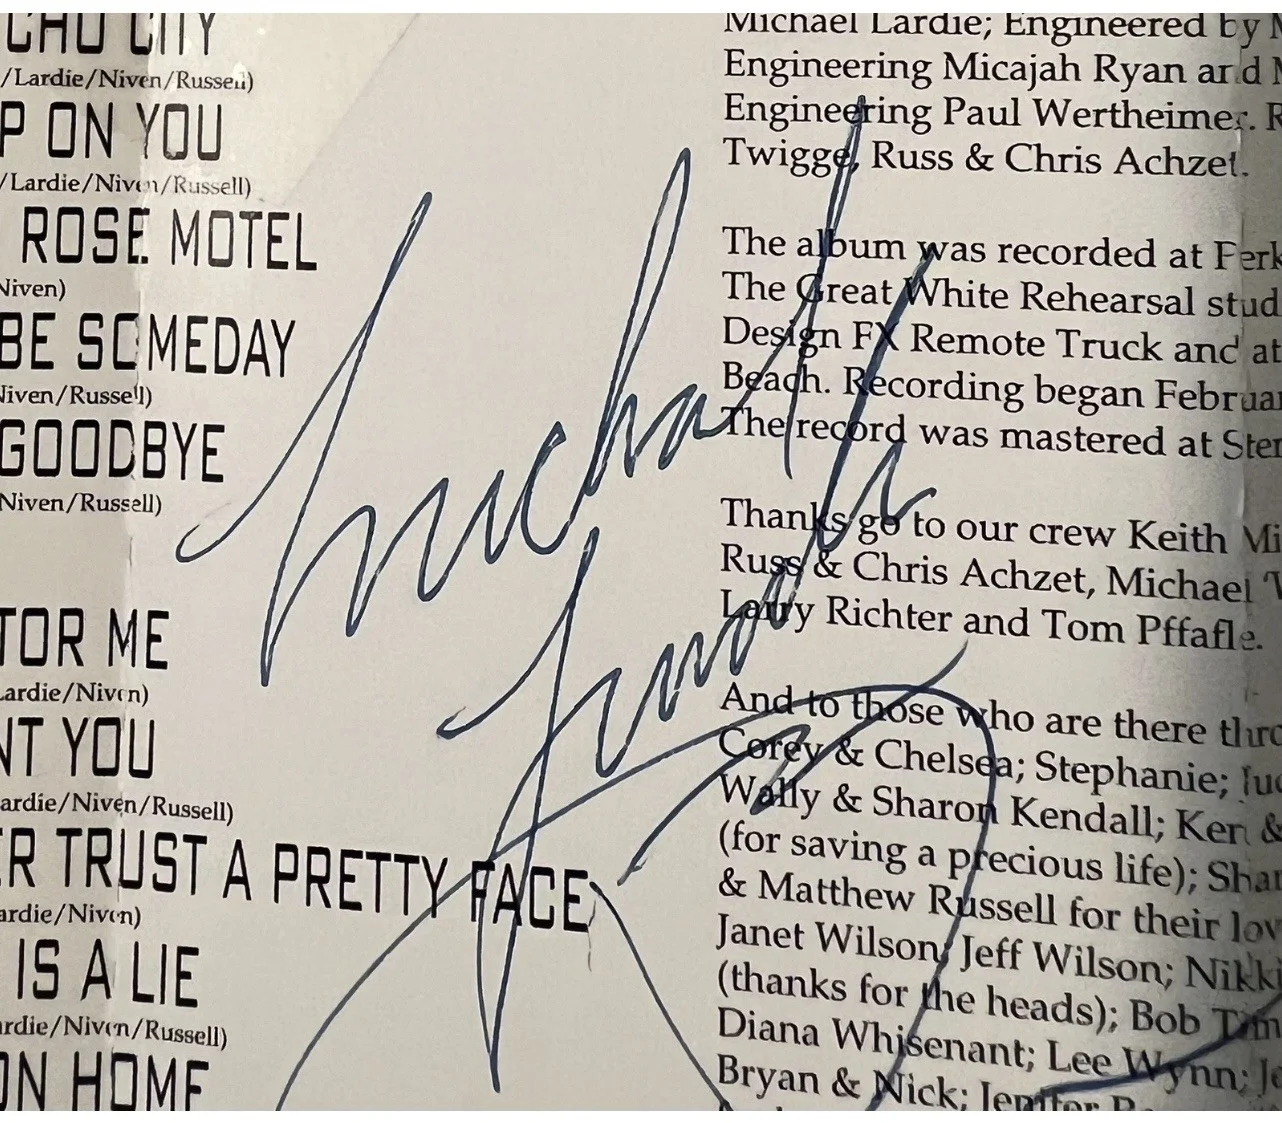 CHO CITY
/Lardie/Niven/Russell)
P ON YOU
/Lardie/Niven/Russell)
ROSE MOTEL
Niven)
BE SOMEDAY
Niven/Russell)
GOODBYE
Niven/Russell)
FOR ME
Lardie/Niven)
NT YOU
ardie/Niven/Russell)
ER TRUST A PRETTY FACE
ardie/Niven)
IS A LIE
rdie/Niven/Russell)
ON HOME
Michael Lardie; Engineered by M
Engineering Micajah Ryan and M
Engineering Paul Wertheimer. R
Twigge, Russ & Chris Achzet.
The album was recorded at Ferk
The Great White Rehearsal stud
Design FX Remote Truck and at
Beach. Recording began Februar
The record was mastered at Ster
Thanks go to our crew Keith Mi
Russ & Chris Achzet, Michael
Larry Richter and Tom Pffafle.
And to those who are there thro
Corey & Chelsea; Stephanie; Jud
Wally & Sharon Kendall; Ken &
(for saving a precious life); Shar
& Matthew Russell for their lov
Janet Wilson; Jeff Wilson; Nikki
(thanks for the heads); Bob Tim
Diana Whisenant; Lee Wynn; Je
Bryan & Nick; Jenifer
Michael
Lardie